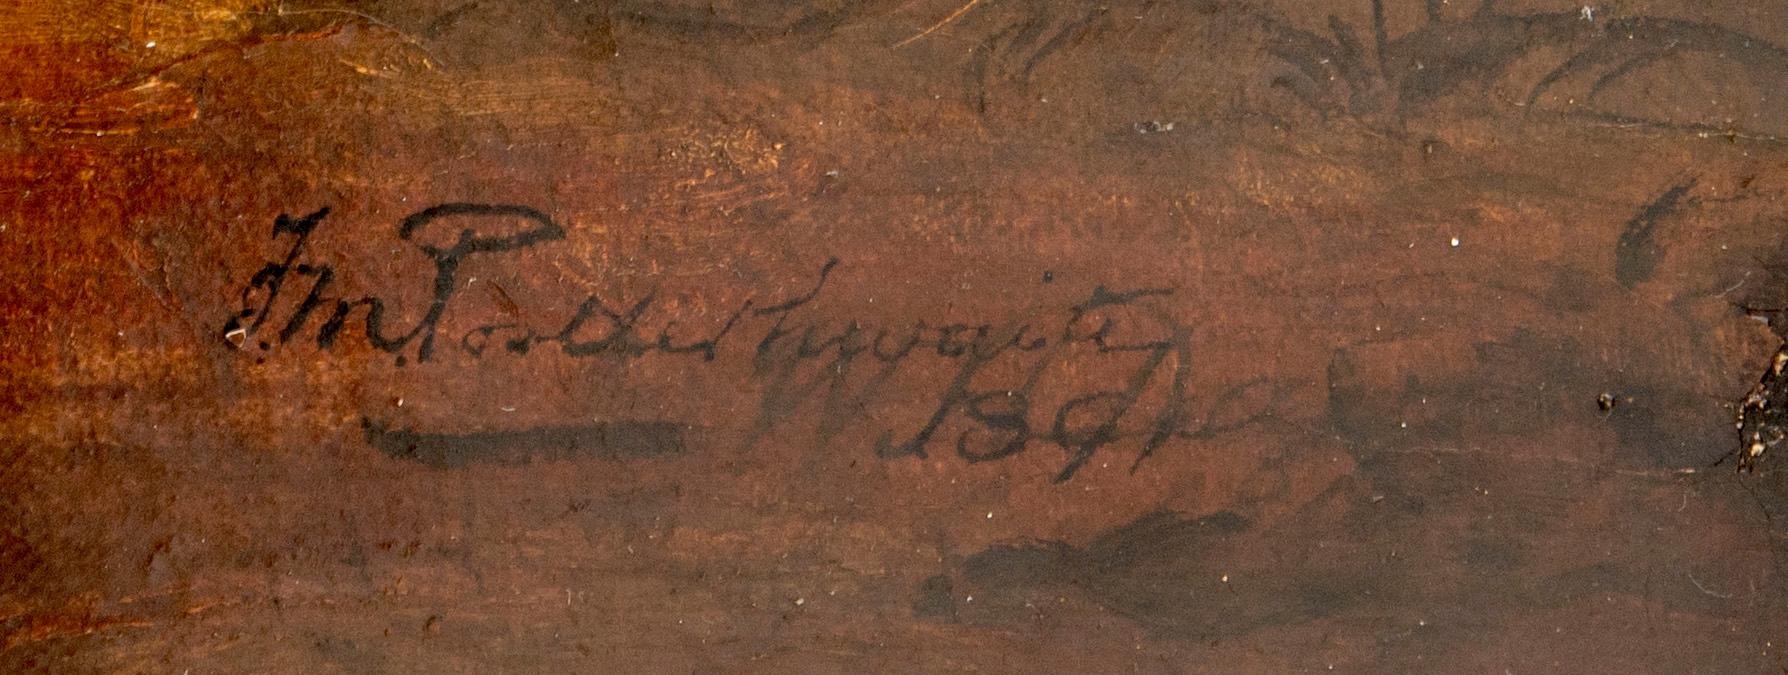 J.M. Postlethwaite
1891